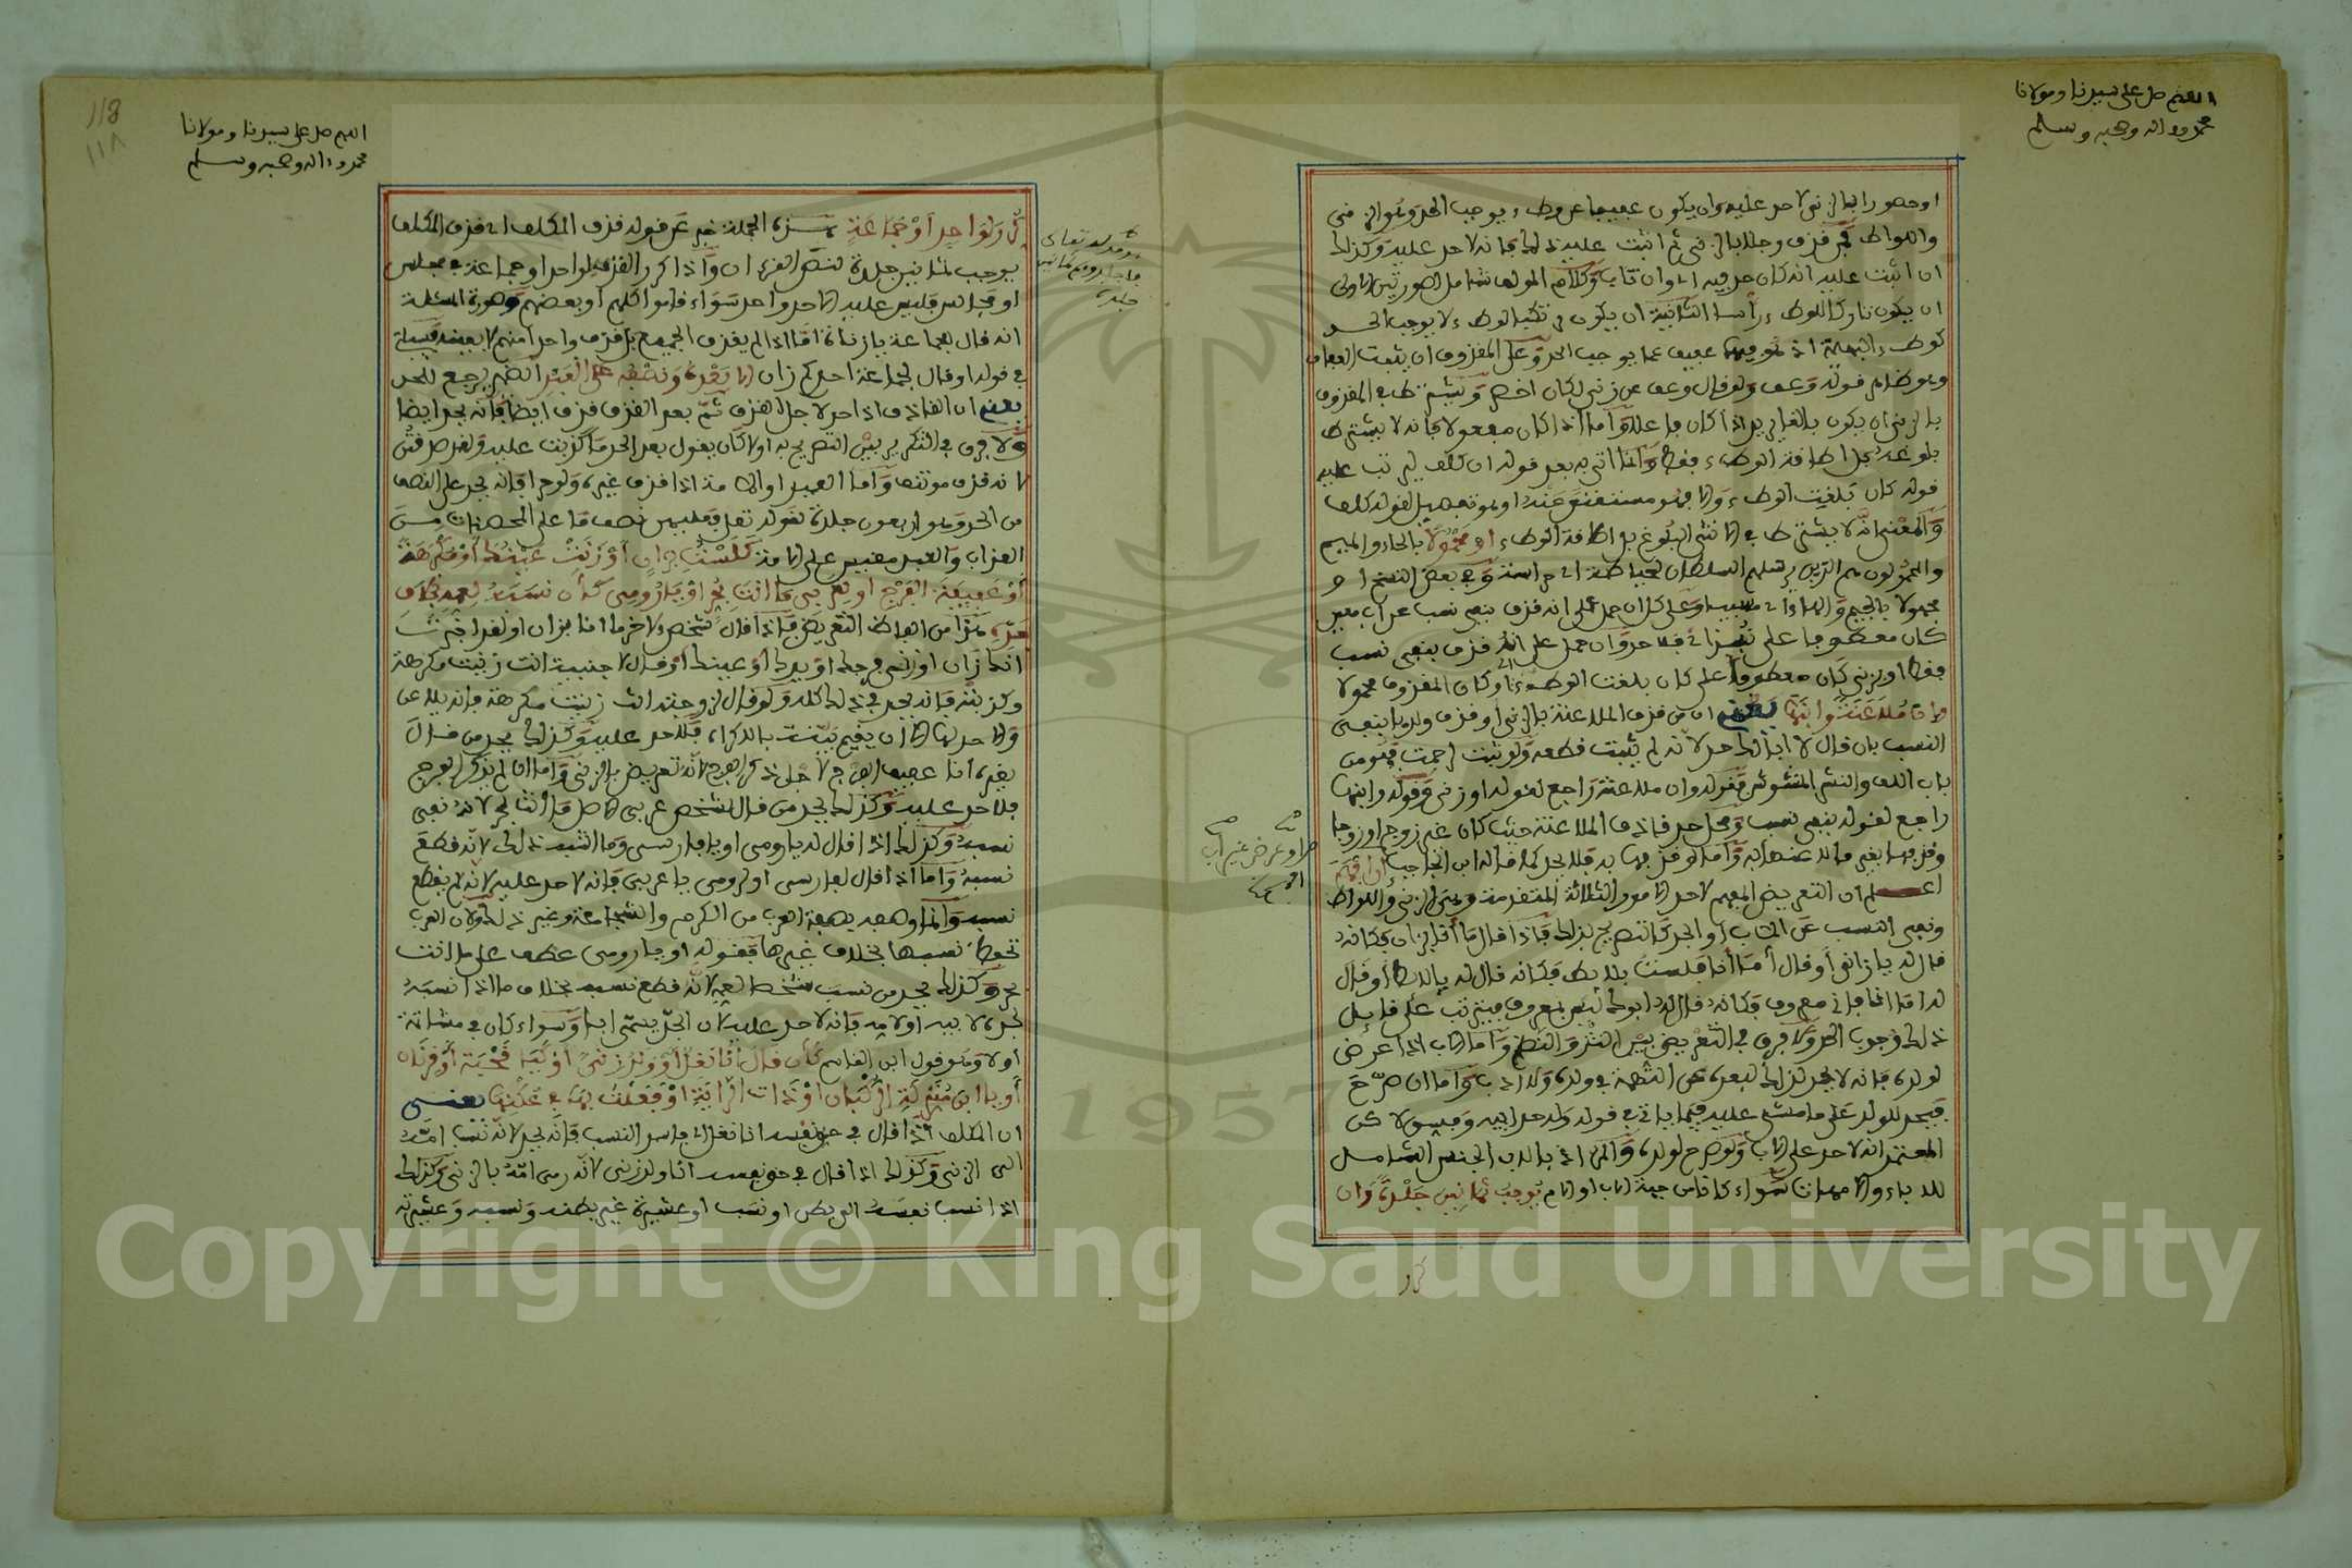 اللهم صل على سيدنا ومولانا
محمد واله وصحبه وسلم
او حصور ابالزنى لاحد عليه وان يكون عفيفا عن وطء يوجب الحد وهو الزنى
واللواط فمن قذف رجلا بالزنى ثم اثبت عليه ذلك فانه لاحد عليه وكذلك
ان اثبت عليه انه كان حد فيه اى وان تاب وكلام المولف شامل لصورتين الاولى
ان يكون تاركا للوطء رأسا الثانية ان يكون مرتكبا لوطء لا يوجب الحد
كوطء البهيمة اذ هو فيها عفيف عما يوجب الحد وعلى المقذوف ان يثبت العفاف
وهو ظاهر قوله وعف ولو قال وعف عن زنى لكان اخصر ويشترط في المقذوف
بالزنى ان يكون بالغا يريد اذا كان فاعلا واما اذا كان مفعولا فانه لا يشترط
بلوغه بل اطاقة الوطء فقط وانما اتى به بعد قوله ان كلف ليرتب عليه
قوله كان بلغت الوطء والا فهو مستغنى عنه او هو تفصيل لقوله كلف
والمعنى انه لا يشترط في الانثى البلوغ بل اطاقة الوطء او محمولا بالحاء والميم
والمحمولون هم الذين يرسلهم السلطان لحياطة اى حراسة وفي بعض النسخ او
مجهولا بالجيم والهاء اى مسبيا وعلى كل ان حمل على انه قذف بنفى نسب عن اب معين
كان معطوفا على فلا حد وان حمل على انه قذف بنفى نسب
فقط او بزنى كان معطوفا على كان بلغت الوطء اى او كان المقذوف محمولا
وان ملاعنة وابنها يعنى ان من قذف الملاعنة بالزنى او قذف ولدها بنفى
النسب بان قال لا ابا لك حد لانه لم يثبت قطعه ولو ثبت لرجمت فهو من
باب اللف والنشر المشوش فقوله وان ملاعنة راجع لقوله او زنى وقوله وابنها
راجع لقوله بنفى نسب ومحل حد قاذف الملاعنة حيث كان غير زوج او زوجا
وقذفها بغير ما لاعنها به واما لو قذفها به فلا يحد كما قاله ابن الحاجب ان افهم
اعلم ان التعريض المفهم لاحد الامور الثلاثة المتقدمة وهى الزنى واللواط
ونفى النسب عن الاب او الجد كالتصريح بذلك فاذا قال ما أنا بزان فكانه
قال له يا زانى أو قال أما أنا فلست بلائط فكانه قال له يا لائط او قال
له اما انا فابى معروف فكانه قال له ابوك ليس بمعروف فيترتب على قائل
ذلك وجوب الحد ولا فرق في التعريض بين النثر والنظم واما الاب اذا عرض
لولده فانه لا يحد لذلك لبعده عن التهمة في ولده ولذا ادب واما ان صرح
فيحد للولد على ما مشى عليه فيما ياتى في قوله وله حد ابيه وفسق لاكن
المعتمد انه لاحد على الاب ولو صرح لولده والمراد بالاب الجنس الشامل
للاباء والامهات سواء كانا من جهة الاب او الام يوجب ثمانين جلدة وان
كرر
حد او عرض غير اب
اللهم صل على سيدنا ومولانا
محمد واله وصحبه وسلم
118
١١٨
كرر لواحد او جماعة هذه الجملة خبر عن قوله قذف المكلف اى قذف المكلف
يوجب ثمانين جلدة لنص القرءان واذا كرر القذف لواحد او جماعة في مجلس
او مجالس فليس عليه الا حد واحد سواء قاموا كلهم او بعضهم وصورة المسئلة
انه قال لجماعة يا زناة اما اذا لم يقذف الجميع بل قذف واحدا منهم لا بعينه فسياتى
في قوله او قال لجماعة احدكم زان الا بعده ونصفه على العبد الضمير يرجع للحد
يعنى ان القاذف اذا حد لاجل القذف ثم بعد القذف قذف ايضا فانه يحد ايضا
ولا فرق في التكرير بين التصريح به او لا كان يقول بعد الحد ما كذبت عليه ولقد صدقت
لانه قذف موتنف واما العبد او الامة اذا قذف غيره ولو حرا فانه يحد على النصف
من الحد وهو اربعون جلدة لقوله تعلى فعليهن نصف ما على المحصنات من
العذاب والعبد مقيس على الامة كلست بزان او زنت عينك او مكرهة
أو عفيف الفرج او لعربى ما انت بحر او يا رومى كأن نسبه لعمه بخلاف
جده هذا من الفاظ التعريض فاذا قال شخص لاخر ما انا بزان او لقد اخبرت
انك زان او زنى فرجك او يدك او عينك او قال لاجنبية انت زنيت مكرهة
وكذبته فانه يحد في ذلك كله ولو قال لزوجته انت زنيت مكرهة فانه يلاعن
والا حد لها الا ان يقيم بينة بالاكراه فلا حد عليه وكذلك يحد من قال
لغيره انا عفيف الفرج لاجل ذكر الفرج لانه تعريض بالزنى واما ان لم يذكر الفرج
فلا حد عليه وكذلك يحد من قال لشخص عربى الاصل ما انت بحر لانه نفى
نسبه وكذلك اذا قال له يا رومى او يا فارسى وما اشبه ذلك لانه قطع
نسبه واما اذا قال لفارسى او لرومى يا عربى فانه لاحد عليه لانه لم يقطع
نسبه وانما وصفه بصفة العرب من الكرم والشجاعة وغير ذلك ولان العرب
تحفظ نسبها بخلاف غيرها فقوله او يا رومى عطف على ما انت
بحر وكذلك يحد من نسب شخصا لعمه لانه قطع نسبه بخلاف ما اذا نسبه
لجده لابيه او لامه فانه لاحد عليه لان الجد يسمى ابا وسواء كان في مشاتمة
أو لا وهو قول ابن القاسم كأن قال أنا نغل أو ولد زنى أو كيا قحبة أو قرنان
أو يا ابن منزلة الركبان او ذات الراية او فعلت بها في عكنها يعنى
ان المكلف اذا قال في حق نفسه انا نغل اى فاسد النسب فانه يحد لانه نسب امه
الى الزنى وكذلك اذا قال في حق نفسه انا ولد زنى لانه رمى امه بالزنى وكذلك
اذا نسب نفسه الى بطن او نسب او عشيرة غير بطنه ونسبه وعشيرته
قوله تعالى
فاجلدوهم ثمانين
جلدة
Copyright © King Saud University
1957